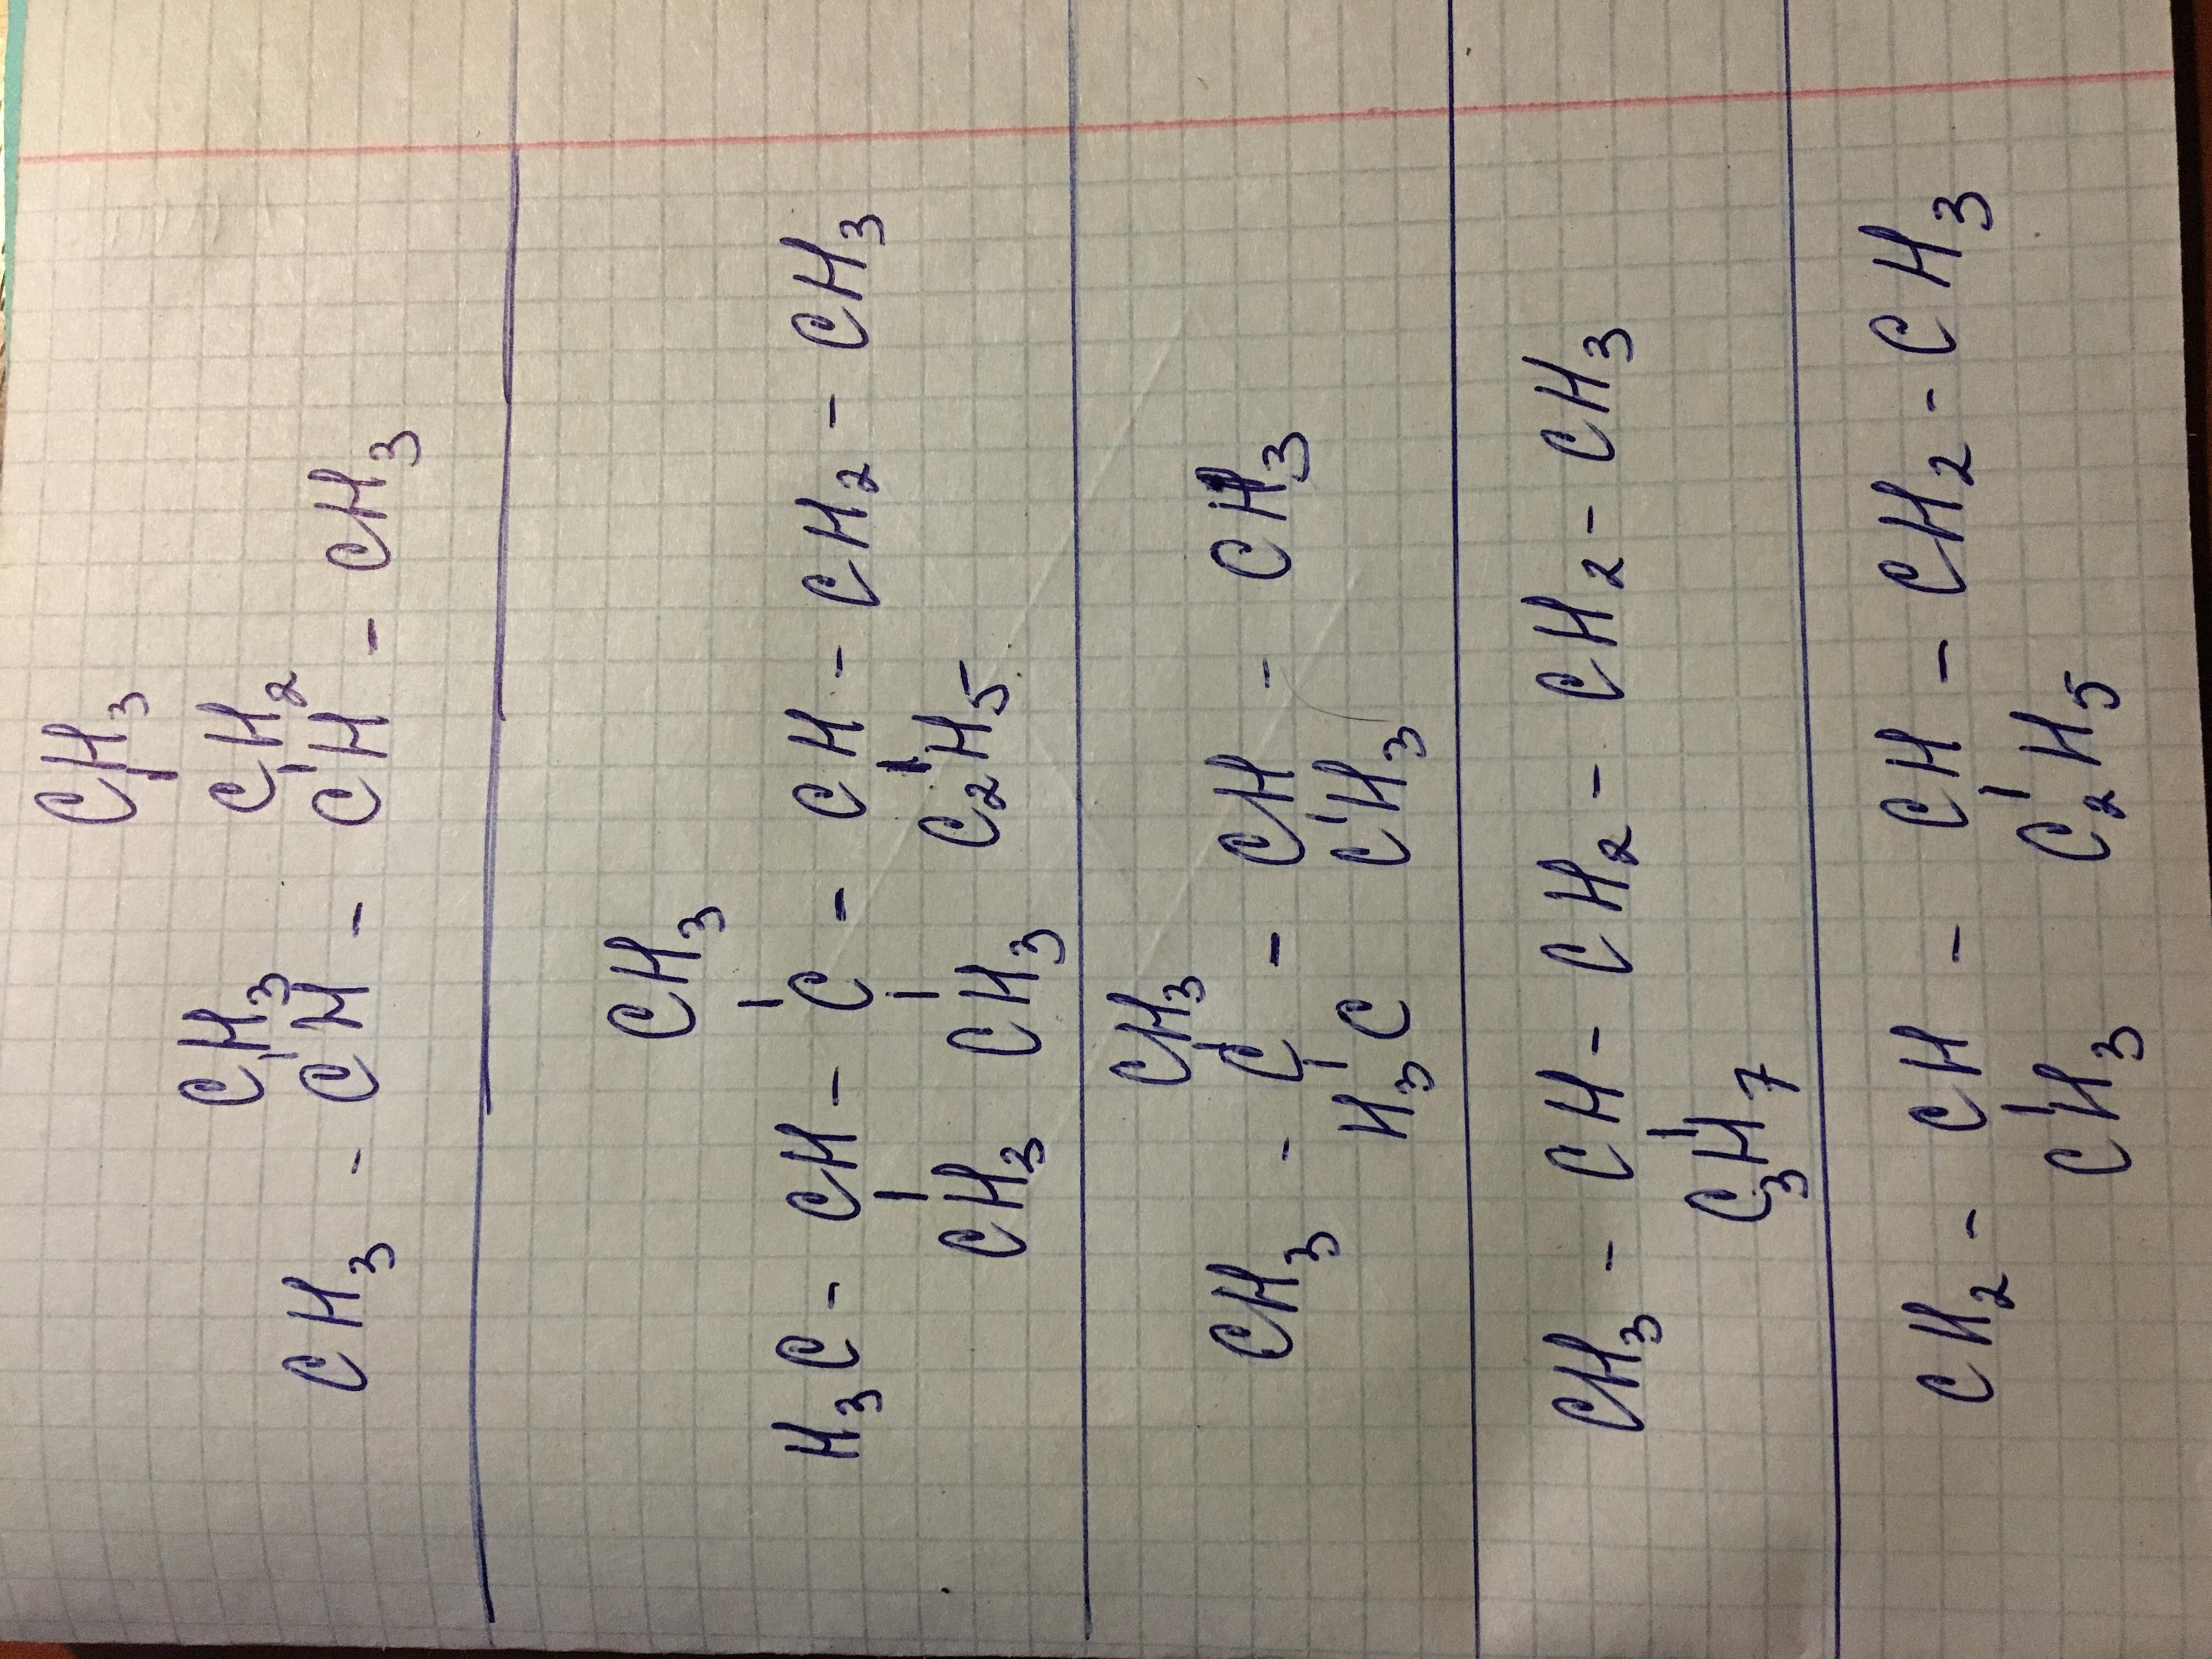 CH₃
CH₃ CH₂
CH₃ - CH - CH - CH₃
CH₃
H₃C - CH - C - CH - CH₂ - CH₃
CH₃ CH₃ C₂H₅
CH₃
CH₃ - C - CH - CH₃
H₃C CH₃
CH₃ - CH - CH₂ - CH₂ - CH₃
C₃H₇
CH₂ - CH - CH - CH₂ - CH₃
CH₃ C₂H₅